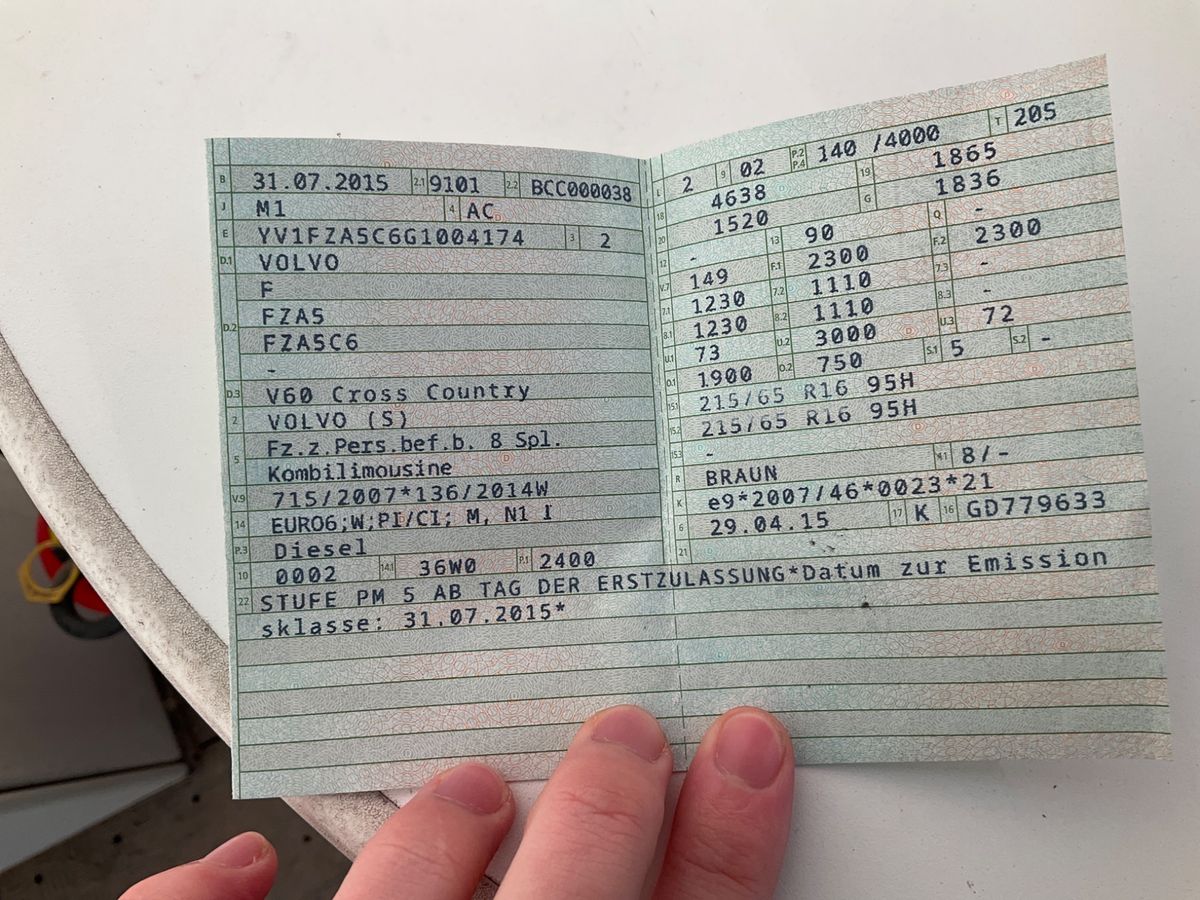 B 31.07.2015 2.1 9101 2.2 BCC000038
J M1 4 AC
E YV1FZA5C6G1004174 3 2
D.1 VOLVO
F
D.2 FZA5
FZA5C6
-
D.3 V60 Cross Country
2 VOLVO (S)
5 Fz.z.Pers.bef.b. 8 Spl.
Kombilimousine
V.9 715/2007*136/2014W
14 EURO6;W;PI/CI; M, N1 I
P.3 Diesel
10 0002 14.1 36W0 P.1 2400
L 2 9 02 P.2 P.4 140 /4000 T 205
18 4638 19 1865
20 1520 G 1836
12 - 13 90 Q -
V.7 149 F.1 2300 F.2 2300
7.1 1230 7.2 1110 7.3 -
8.1 1230 8.2 1110 8.3 -
U.1 73 U.2 3000 U.3 72
O.1 1900 O.2 750 S.1 5 S.2 -
15.1 215/65 R16 95H
15.2 215/65 R16 95H
15.3 -
R BRAUN 11 8/-
K e9*2007/46*0023*21
6 29.04.15 17 K 16 GD779633
21
22 STUFE PM 5 AB TAG DER ERSTZULASSUNG*Datum zur Emission
sklasse: 31.07.2015*